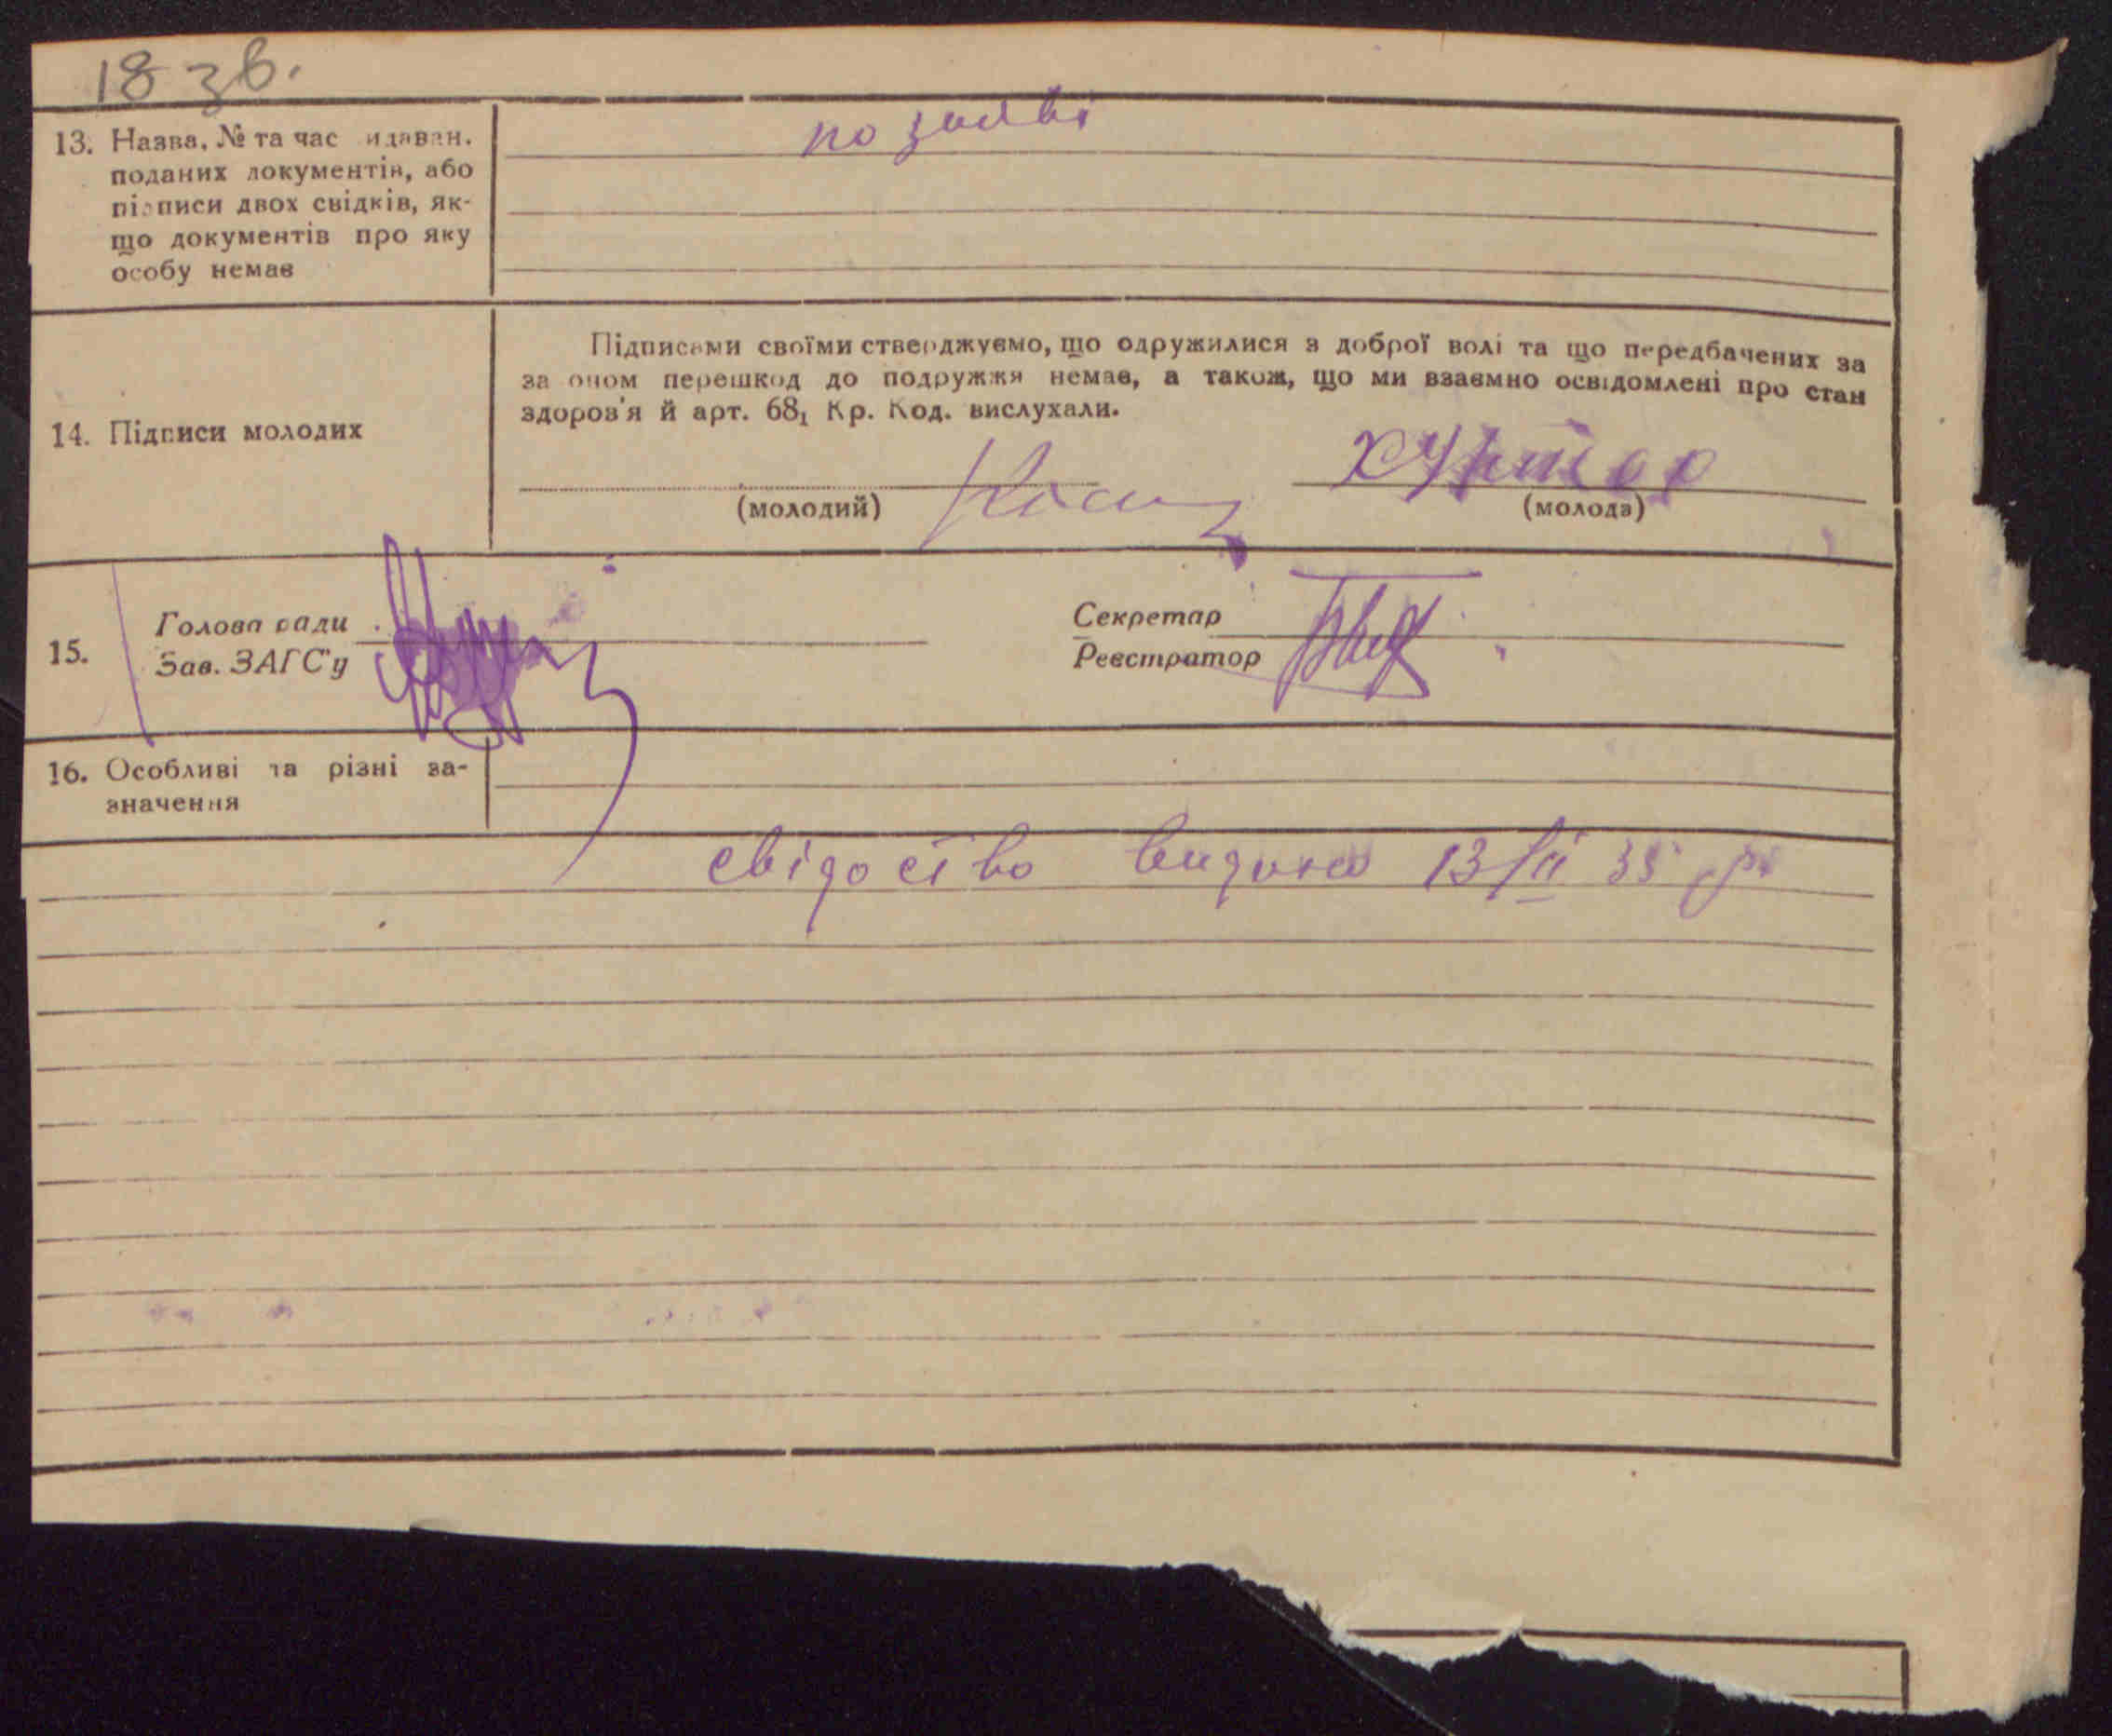 18 зв.
13. Назва, № та час идаван.
поданих документів, або
підписи двох свідків, як-
що документів про яку
особу немає
по заяві
Підписами своїми стверджуємо, що одружилися з доброї волі та що передбачених за
за оном перешкод до подружжя немає, а також, що ми взаємно освідомлені про стан
здоров'я й арт. 68₁ Кр. Код. вислухали.
14. Підписи молодих
(молодий) (молода)
15. Голова ради Секретар
Зав. ЗАГС'у Реєстратор
16. Особливі та різні за-
значення
свідоство видано 13/II 35 р.